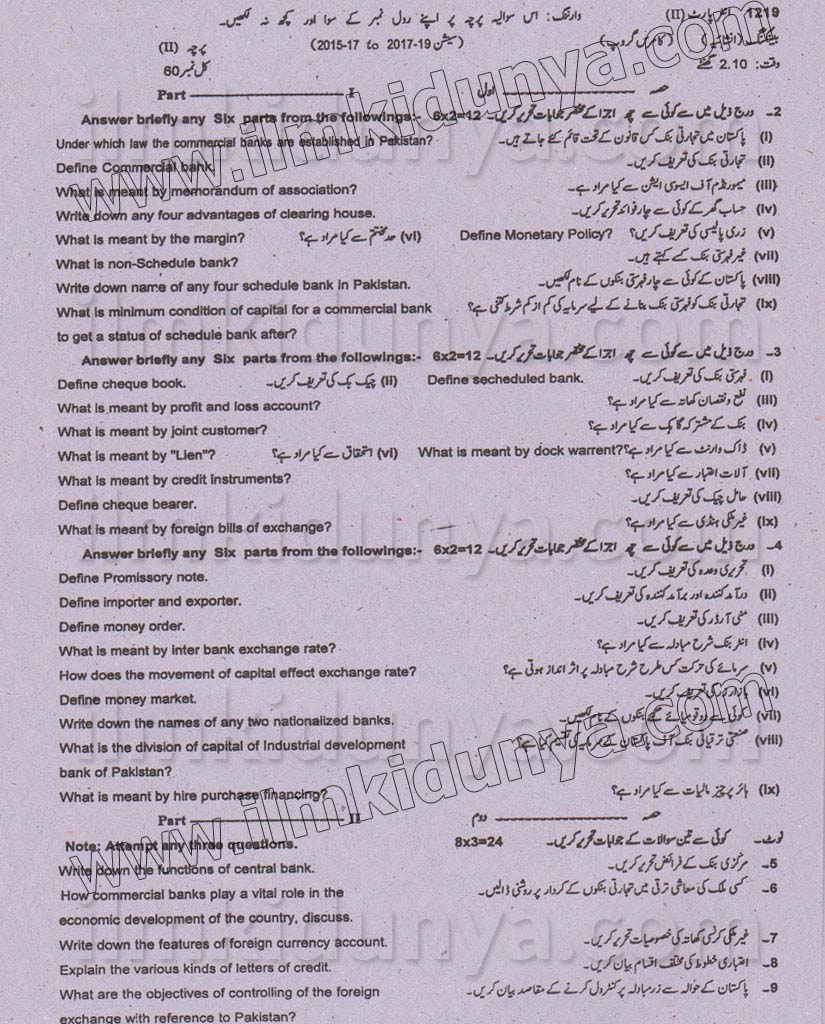 1219 انٹر پارٹ (II) وارننگ: اس سوالیہ پرچہ پر اپنے رول نمبر کے سوا اور کچھ نہ لکھیں۔
بینکنگ (انشائیہ) (کامرس گروپ) (سیشن 2015-17 to 2017-19) پرچہ (II)
وقت: 2.10 گھنٹے کل نمبر 60
Part I حصہ اول
Answer briefly any Six parts from the followings:- 6x2=12 2۔ درج ذیل میں سے کوئی سے چھ اجزا کے مختصر جوابات تحریر کریں۔
Under which law the commercial banks are established in Pakistan? (i) پاکستان میں تجارتی بنک کس قانون کے تحت قائم کئے جاتے ہیں۔
Define Commercial bank. (ii) تجارتی بنک کی تعریف کریں۔
What is meant by memorandum of association? (iii) میمورنڈم آف ایسوسی ایشن سے کیا مراد ہے۔
Write down any four advantages of clearing house. (iv) حساب گھر کے کوئی سے چار فوائد تحریر کریں۔
What is meant by the margin? (vi) حد مختتم سے کیا مراد ہے؟ Define Monetary Policy? (v) زری پالیسی کی تعریف کریں؟
What is non-Schedule bank? (vii) غیر فہرستی بنک کسے کہتے ہیں۔
Write down name of any four schedule bank in Pakistan. (viii) پاکستان کے کوئی سے چار فہرستی بنکوں کے نام لکھیں۔
What is minimum condition of capital for a commercial bank (ix) تجارتی بنک کو فہرستی بنک بنانے کے لیے سرمایہ کی کم از کم شرط کتنی ہے؟
to get a status of schedule bank after?
Answer briefly any Six parts from the followings:- 6x2=12 3۔ درج ذیل میں سے کوئی سے چھ اجزا کے مختصر جوابات تحریر کریں۔
Define cheque book. (ii) چیک بک کی تعریف کریں۔ Define secheduled bank. (i) فہرستی بنک کی تعریف کریں۔
What is meant by profit and loss account? (iii) نفع و نقصان کھاتہ سے کیا مراد ہے؟
What is meant by joint customer? (iv) بنک کے مشترکہ گاہک سے کیا مراد ہے؟
What is meant by "Lien"? (vi) استحقاق سے کیا مراد ہے؟ What is meant by dock warrent? (v) ڈاک وارنٹ سے کیا مراد ہے؟
What is meant by credit instruments? (vii) آلات اعتبار سے کیا مراد ہے؟
Define cheque bearer. (viii) حامل چیک کی تعریف کریں۔
What is meant by foreign bills of exchange? (ix) غیر ملکی ہنڈی سے کیا مراد ہے؟
Answer briefly any Six parts from the followings:- 6x2=12 4۔ درج ذیل میں سے کوئی سے چھ اجزا کے مختصر جوابات تحریر کریں۔
Define Promissory note. (i) تحریری وعدہ کی تعریف کریں۔
Define importer and exporter. (ii) درآمد کنندہ اور برآمد کنندہ کی تعریف کریں۔
Define money order. (iii) منی آرڈر کی تعریف کریں۔
What is meant by inter bank exchange rate? (iv) انٹر بنک شرح مبادلہ سے کیا مراد ہے؟
How does the movement of capital effect exchange rate? (v) سرمائے کی حرکت کس طرح شرح مبادلہ پر اثر انداز ہوتی ہے؟
Define money market. (vi) بازار زر کی تعریف کریں۔
Write down the names of any two nationalized banks. (vii) کوئی سے دو قومیائے گئے بنکوں کے نام لکھیں۔
What is the division of capital of Industrial development (viii) صنعتی ترقیاتی بنک آف پاکستان کے سرمایہ کی تقسیم کیا ہے؟
bank of Pakistan?
What is meant by hire purchase financing? (ix) ہائر پرچیز مالیات سے کیا مراد ہے؟
Part II حصہ دوم
Note: Attempt any three questions. 8x3=24 نوٹ۔ کوئی سے تین سوالات کے جوابات تحریر کریں۔
Write down the functions of central bank. 5۔ مرکزی بنک کے فرائض تحریر کریں۔
How commercial banks play a vital role in the 6۔ کسی ملک کی معاشی ترقی میں تجارتی بنکوں کے کردار پر روشنی ڈالیں۔
economic development of the country, discuss.
Write down the features of foreign currency account. 7۔ غیر ملکی کرنسی کھاتہ کی خصوصیات تحریر کریں۔
Explain the various kinds of letters of credit. 8۔ اعتباری خطوط کی مختلف اقسام بیان کریں۔
What are the objectives of controlling of the foreign 9۔ پاکستان کے حوالہ سے زرمبادلہ پر کنٹرول کرنے کے مقاصد بیان کریں۔
exchange with reference to Pakistan?
www.ilmkidunya.com
www.ilmkidunya.com
ilmkidunya.com
ilmkidunya.com
ilmkidunya.com
ilmkidunya.com
ilmkidunya.com